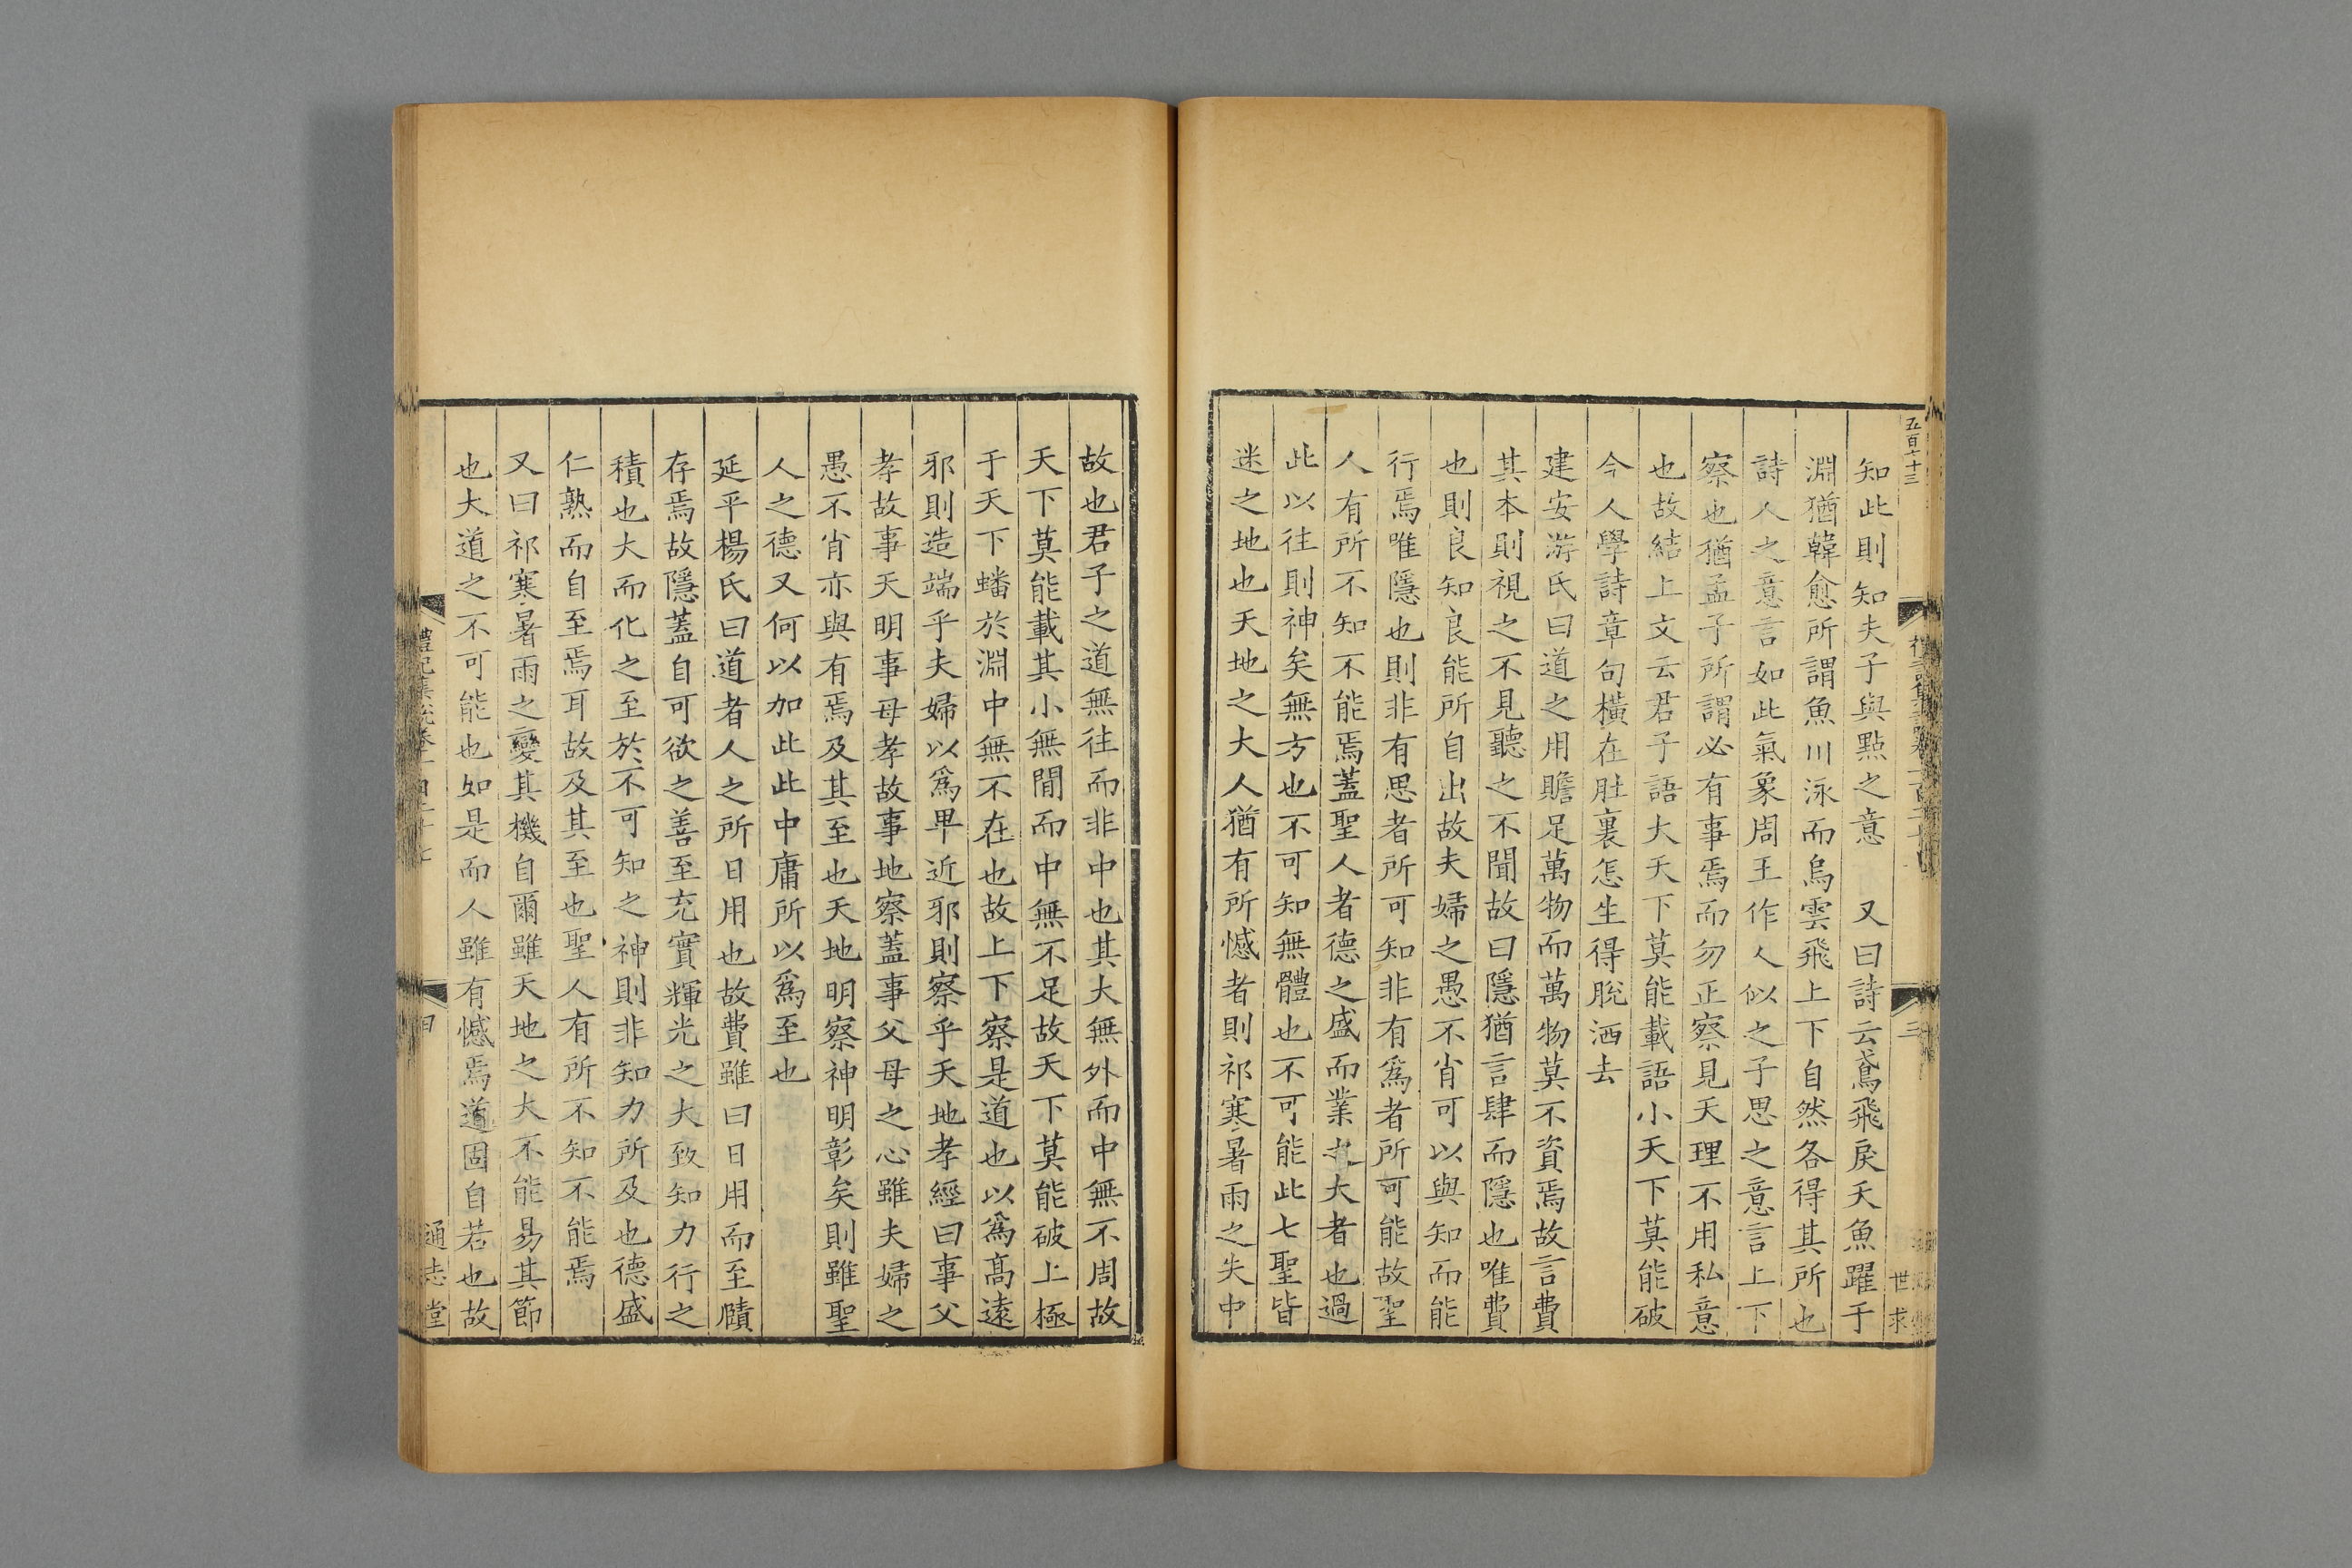 五百七十三
知此則知夫子與點之意 又曰詩云鳶飛戾天魚躍于
淵猶韓愈所謂魚川泳而鳥雲飛上下自然各得其所也
詩人之意言如此氣象周王作人似之子思之意言上下
察也猶孟子所謂必有事焉而勿正察見天理不用私意
也故結上文云君子語大天下莫能載語小天下莫能破
今人學詩章句橫在肚裏怎生得脫洒去
建安游氏曰道之用贍足萬物而萬物莫不資焉故言費
其本則視之不見聽之不聞故曰隱猶言肆而隱也唯費
也則良知良能所自出故夫婦之愚不肖可以與知而能
行焉唯隱也則非有思者所可知非有爲者所可能故聖
人有所不知不能焉蓋聖人者德之盛而業之大者也過
此以往則神矣無方也不可知無體也不可能此七聖皆
迷之地也天地之大人猶有所憾者則祁寒暑雨之失中
三
世求
故也君子之道無往而非中也其大無外而中無不周故
天下莫能載其小無間而中無不足故天下莫能破上極
于天下蟠於淵中無不在也故上下察是道也以爲高遠
邪則造端乎夫婦以爲卑近邪則察乎天地孝經曰事父
孝故事天明事母孝故事地察蓋事父母之心雖夫婦之
愚不肖亦與有焉及其至也天地明察神明彰矣則雖聖
人之德又何以加此此中庸所以爲至也
延平楊氏曰道者人之所日用也故費雖曰日用而至賾
存焉故隱蓋自可欲之善至充實輝光之大致知力行之
積也大而化之至於不可知之神則非知力所及也德盛
仁熟而自至焉耳故及其至也聖人有所不知不能焉
又曰祁寒暑雨之變其機自爾雖天地之大不能易其節
也大道之不可能也如是而人雖有憾焉道固自若也故
禮記集說卷
通志堂